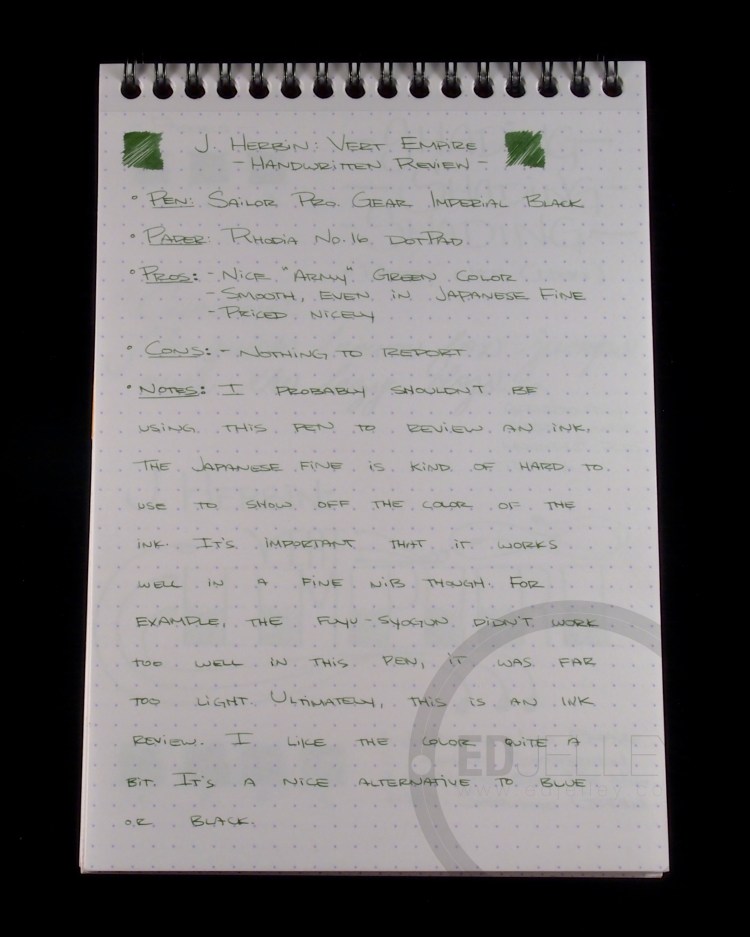 J. Herbin: Vert Empire
- Handwritten Review -
• Pen: Sailor Pro. Gear Imperial Black
• Paper: Rhodia No. 16 DotPad
• Pros: - Nice "Army" Green Color
- Smooth, even in Japanese Fine
- Priced nicely
• Cons: - Nothing to report
• Notes: I probably shouldn't be
using this pen to review an ink.
The Japanese fine is kind of hard to
use to show off the color of the
ink. It's important that it works
well in a fine nib though. For
example, the Fuyu-Syogun didn't work
too well in this pen, it was far
too light. Ultimately, this is an ink
review. I like the color quite a
bit. It's a nice alternative to blue
or black.
EDJELLEY